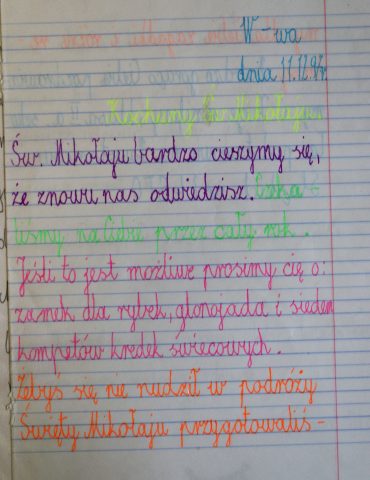 W-wa
dnia 11.12.94r.
Kochany Św. Mikołaju,
Św. Mikołaju bardzo cieszymy się,
że znowu nas odwiedzisz. Czeka-
liśmy na Ciebie przez cały rok.
Jeśli to jest możliwe prosimy cię o:
zamek dla rybek, glonojada i siedem
kompetów kredek świecowych.
Żebyś się nie nudził w podróży
Święty Mikołaju przygotowaliś-